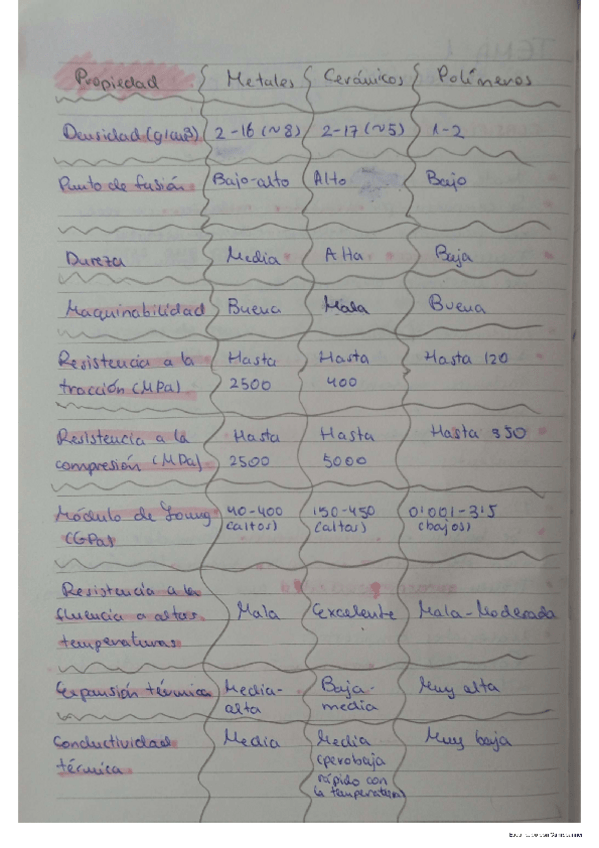 Propiedad Metales Cerámicos Polímeros
Densidad (g/cm3) 2-16 (~8) 2-17 (~5) 1-2
Punto de fusión Bajo-alto Alto Bajo
Dureza Media Alta Baja
Maquinabilidad Buena Mala Buena
Resistencia a la Hasta Hasta Hasta 120
tracción (MPa) 2500 400
Resistencia a la Hasta Hasta Hasta 350
compresión (MPa) 2500 5000
Módulo de Young 40-400 150-450 0'001-3'5
(GPa) (altos) (altos) (bajos)
Resistencia a la
fluencia a altas Mala Excelente Mala-Moderada
temperaturas
Expansión térmica Media- Baja- Muy alta
alta media
Conductividad Media Media Muy baja
térmica (pero baja
rápido con
la temperatura)